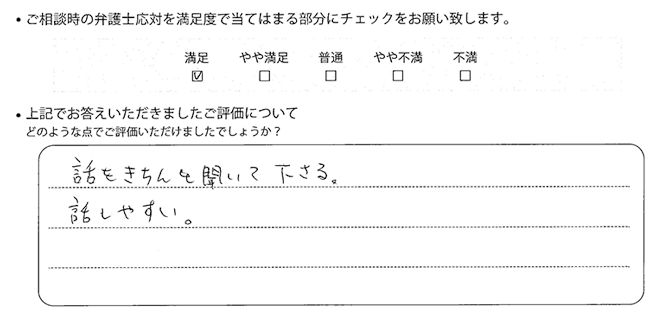 ・ご相談時の弁護士応対を満足度で当てはまる部分にチェックをお願い致します。
満足 やや満足 普通 やや不満 不満
☑ □ □ □ □
・上記でお答えいただきましたご評価について
どのような点でご評価いただけましたでしょうか？
話をきちんと聞いて下さる。
話しやすい。